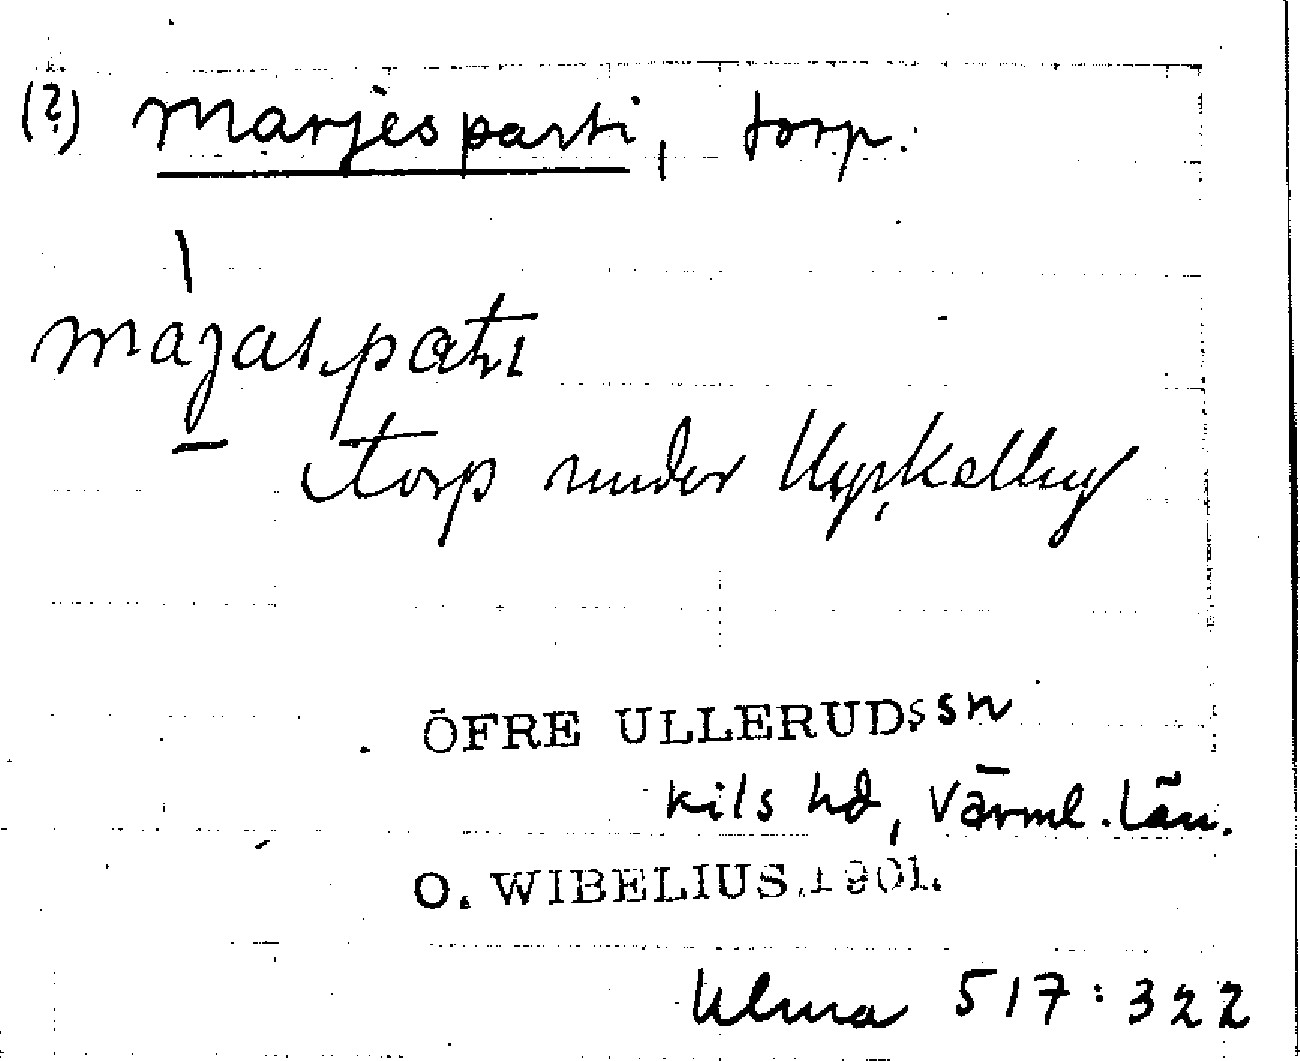 (?) Marjesparti, torp.
májaspatı
torp under Uggelby
ÖFRE ULLERUDS sn
Kils hd, Värml. län.
O. WIBELIUS. 1901.
Ulma 517:322